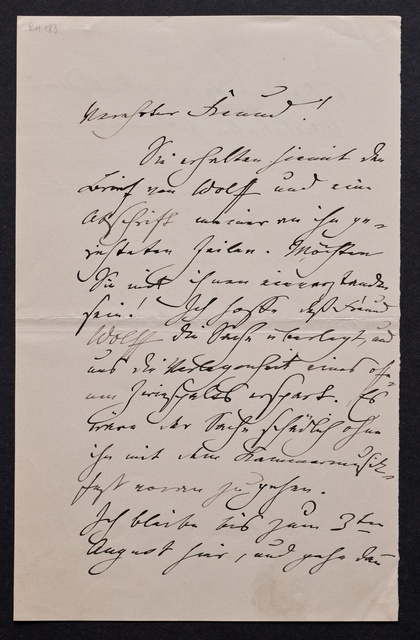 BH 183
Verehrter Freund!
Sie erhalten hiemit den
Brief von Wolff und eine
Abschrift meiner an ihn ge-
richteten Zeilen. Möchten
Sie mit ihnen einverstanden
sein! Ich hoffe daß Freund
Wolff die Sache überlegt, und
uns die Verlegenheit eines
Zwiespalts erspart. Es
wäre der Sache schädlich ohne
ihn mit dem Kammermusik-
fest vorzugehen.
Ich bleibe bis zum 3ten
August hier, und gehe dan